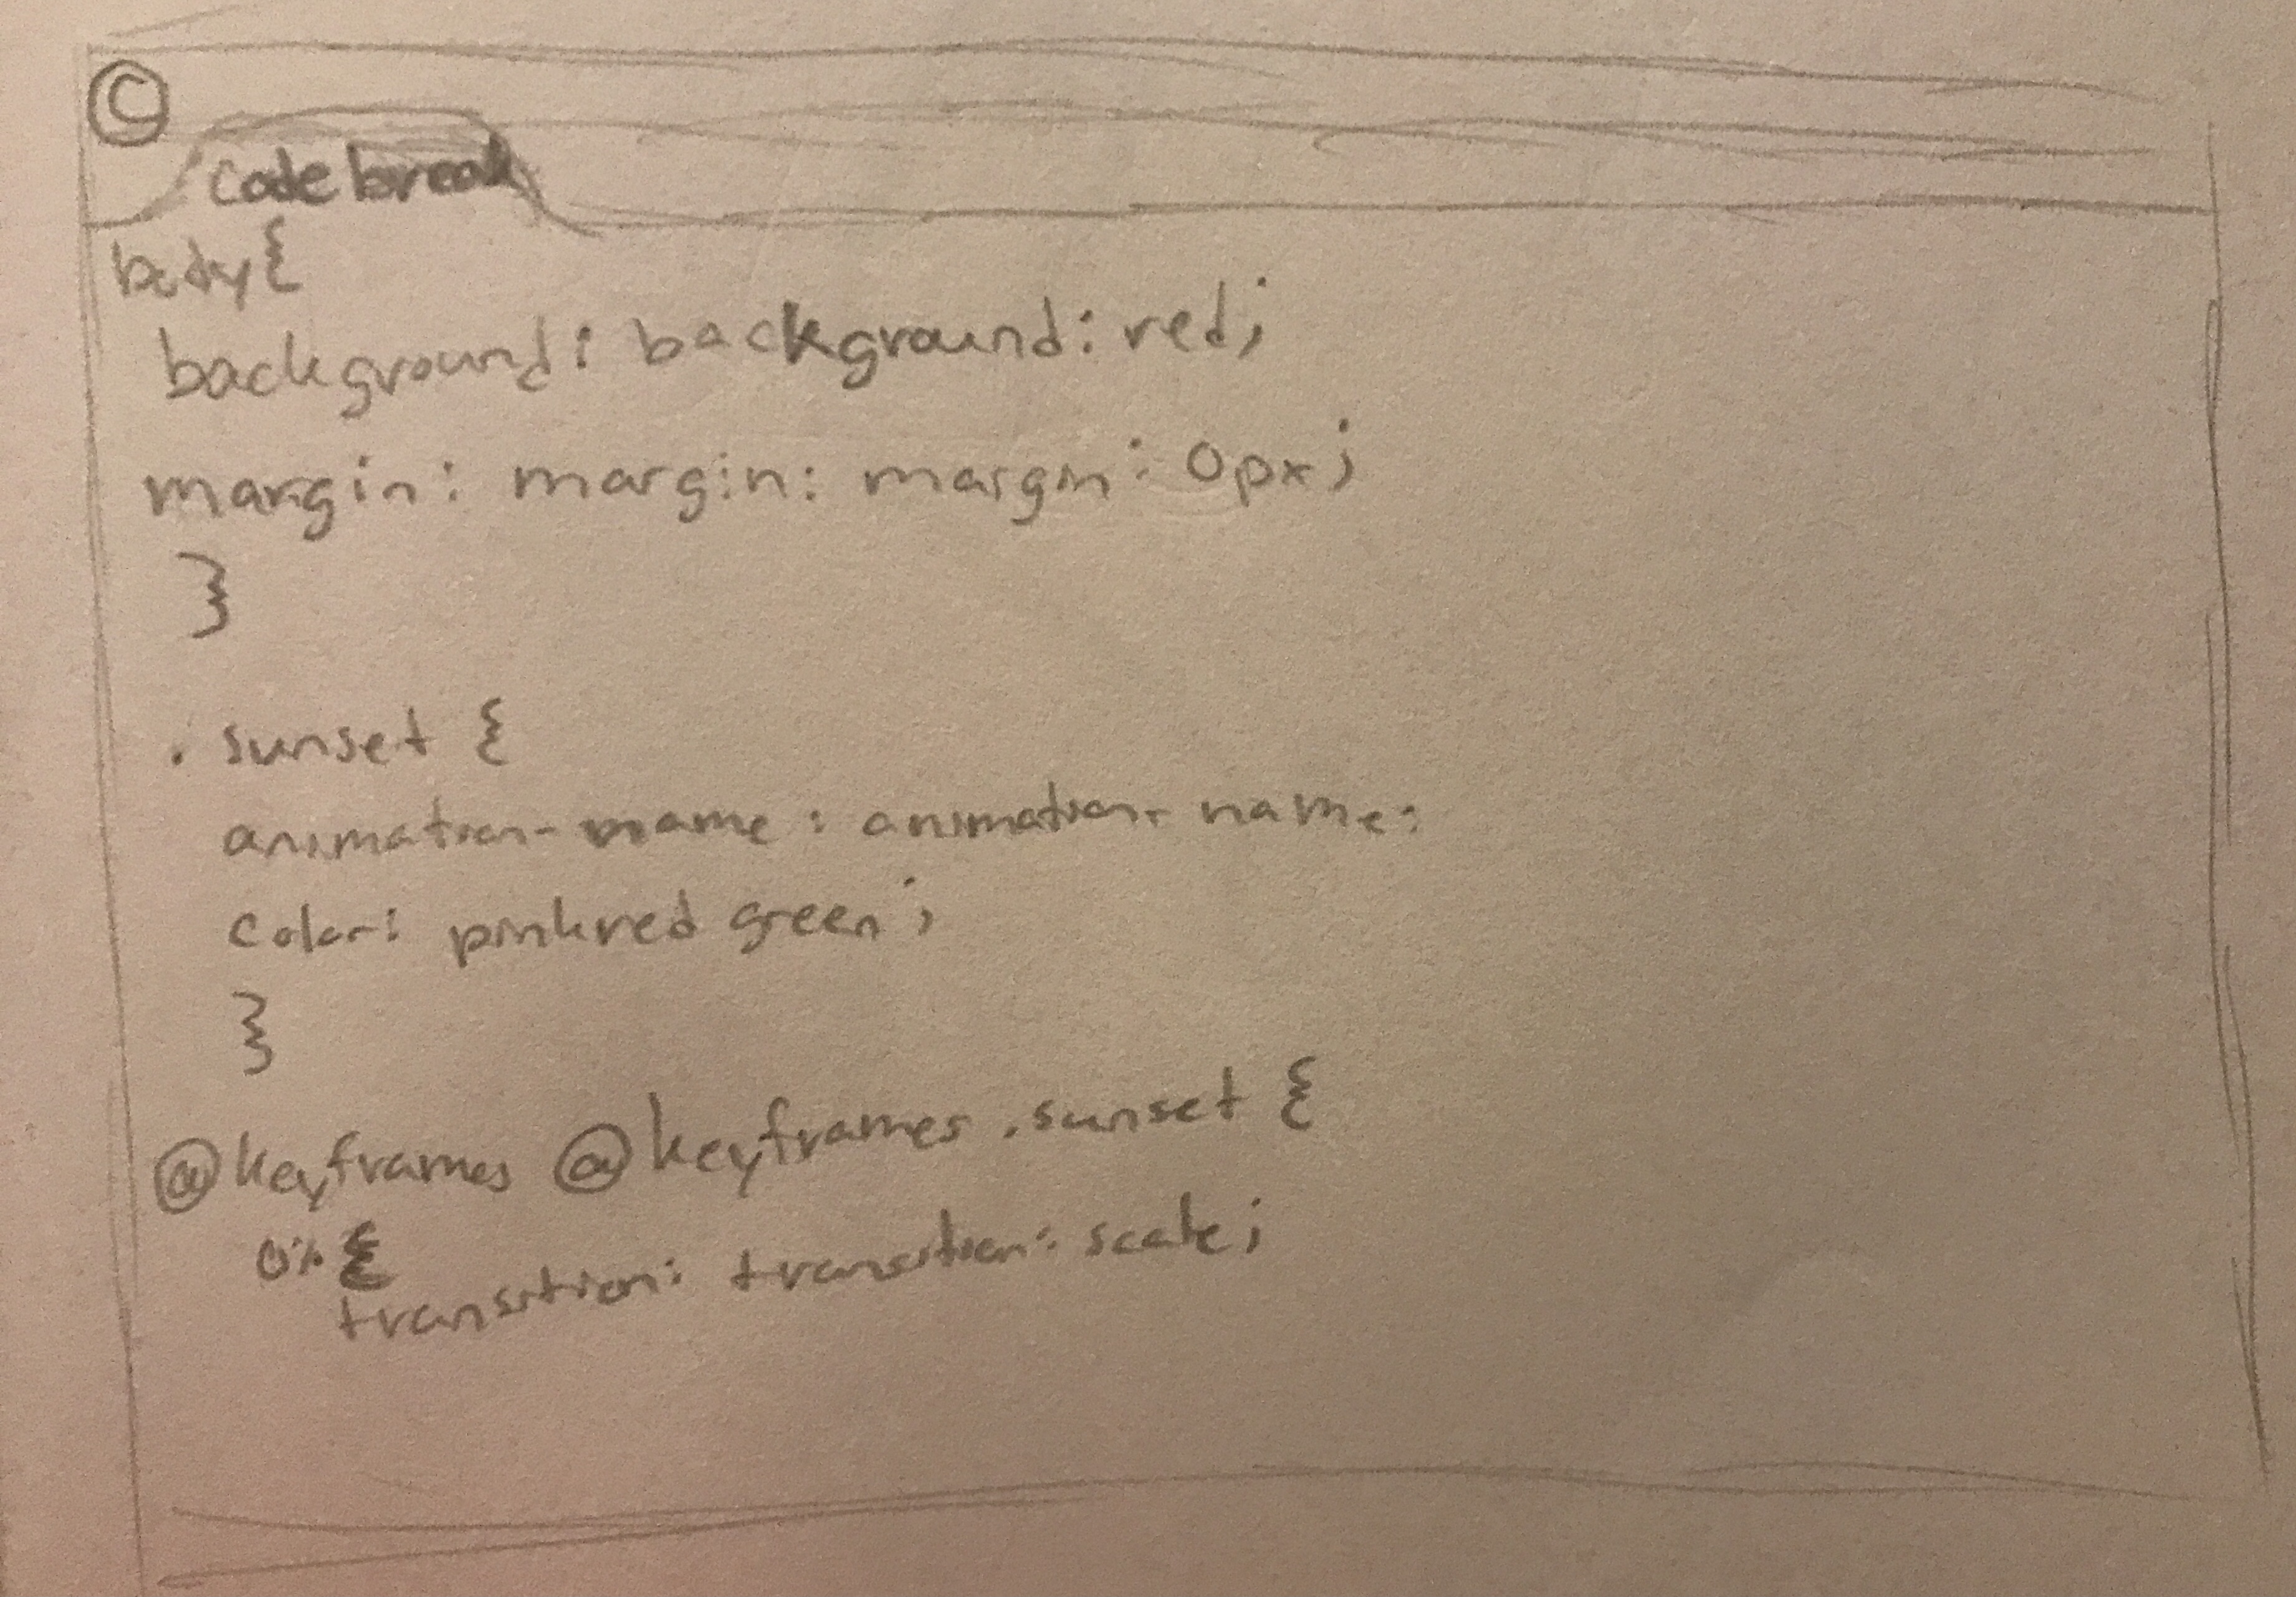 ©
Code break
body{
background: background: red;
margin: margin: margin: 0px;
}
.sunset {
animation-name: animation-name:
color: pinkred green;
}
@keyframes @keyframes .sunset {
0% {
transition: transition: scale;